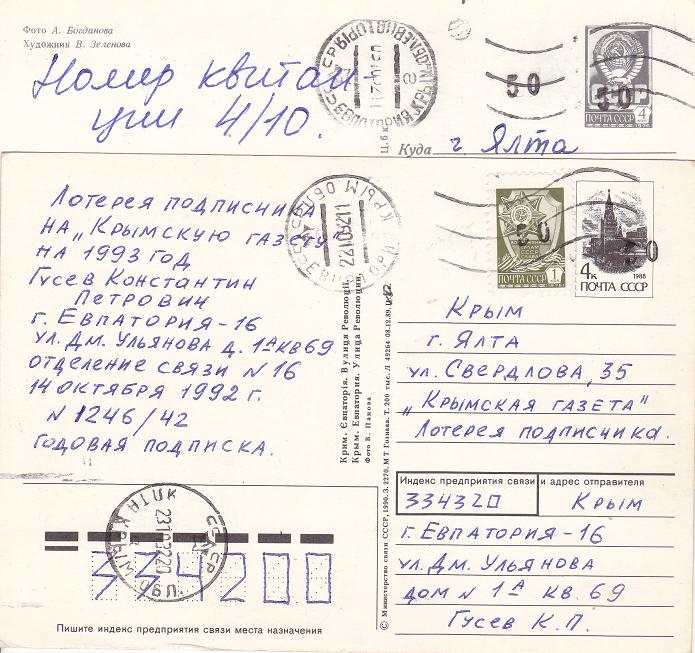 Фото А. Богданова
Художник В. Зеленова
Номер квитан-
ции 4/10.
50
50
ПОЧТА СССР 4
Куда г. Ялта
Лотерея подписчика
на „Крымскую газету"
на 1993 год
Гусев Константин
Петрович
г. Евпатория-16
ул. Дм. Ульянова д. 1А кв 69
отделение связи N 16
14 октября 1992 г.
N 1246/42
годовая подписка.
Крим. Євпаторія. Вулиця Революції.
Крым. Евпатория. Улица Революции.
Фото В. Панова
50
ПОЧТА СССР 1
50
4к 1988
ПОЧТА СССР
Крым
г. Ялта
ул. Свердлова, 35
„Крымская газета"
Лотерея подписчика.
Индекс предприятия связи и адрес отправителя
334320 Крым
г. Евпатория-16
ул. Дм. Ульянова
дом N 1А кв. 69
Гусев К.П.
334200
Пишите индекс предприятия связи места назначения
© Министерство связи СССР, 1990. З. 2270. МТ Гознака. Т. 200 тыс. Л 49264 08.12.89.